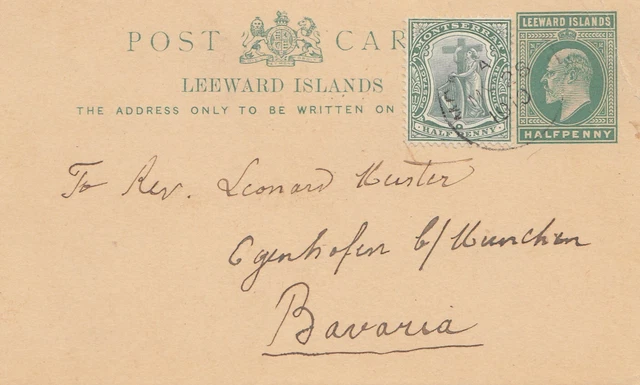 POST CAR
LEEWARD ISLANDS
THE ADDRESS ONLY TO BE WRITTEN ON
MONTSERRAT
HALF PENNY
LEEWARD ISLANDS
HALFPENNY
To Rev. Leonard Kuster
Egenhofen b/ Munchen
Bavaria